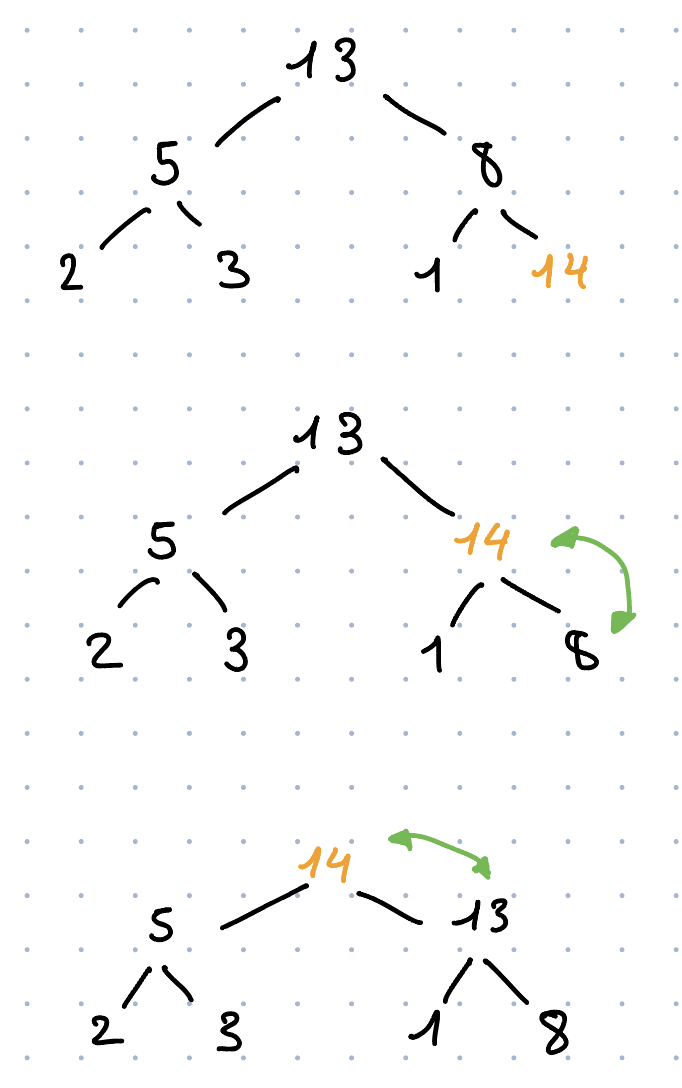 13
5 8
2 3 1 14
13
5 14
2 3 1 8
14
5 13
2 3 1 8